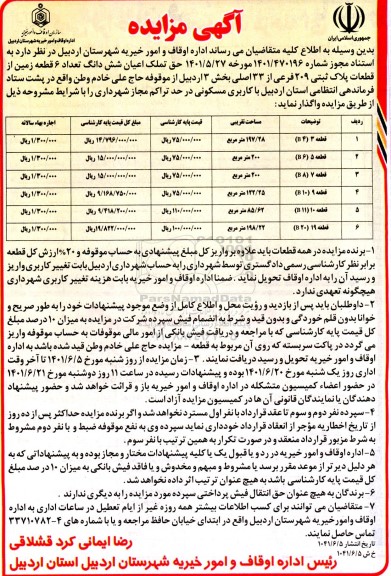 جمهوری اسلامی ایران
آگهی مزایده
سازمان اوقاف و امور خیریه
بدین وسیله به اطلاع کلیه متقاضیان می رساند اداره اوقاف و امور خیریه شهرستان اردبیل در نظر دارد به
استناد مجوز شماره ۱۴۰۱/۴۷۰۱۹۶ مورخه ۱۴۰۱/۵/۲۷ حق تملک اعیان شش دانگ تعداد ۶ قطعه زمین از
قطعات پلاک ثبتی ۲۰۹ فرعی از ۳۳ اصلی بخش ۳ اردبیل از موقوفه حاج علی خادم وطن واقع در پشت ستاد
فرماندهی انتظامی استان اردبیل با کاربری مسکونی در حد تراکم مجاز شهرداری را با شرایط مشروحه ذیل
از طریق مزایده واگذار نماید:
ردیف توضیحات مساحت تقریبی قیمت پایه کارشناسی مبلغ کل قیمت پایه کارشناسی اجاره بهاء سالانه
۱ قطعه ۳ (۴ B) ۱۹۷/۲۸ متر مربع ۷۵/۰۰۰/۰۰۰ ریال ۱۴/۷۹۶/۰۰۰/۰۰۰ ریال ۱/۳۰۰/۰۰۰ ریال
۲ قطعه ۵ (۶ B) ۲۰۰ متر مربع ۷۵/۰۰۰/۰۰۰ ریال ۱۵/۰۰۰/۰۰۰/۰۰۰ ریال ۱/۳۰۰/۰۰۰ ریال
۳ قطعه ۷ (۸ B) ۲۰۰ متر مربع ۷۵/۰۰۰/۰۰۰ ریال ۱۵/۰۰۰/۰۰۰/۰۰۰ ریال ۱/۳۰۰/۰۰۰ ریال
۴ قطعه ۹ (۱۰ B) ۱۲۲/۲۵ متر مربع ۷۵/۰۰۰/۰۰۰ ریال ۹/۱۶۸/۷۵۰/۰۰۰ ریال ۱/۳۰۰/۰۰۰ ریال
۵ قطعه ۱۰ (۱۱ B) ۸۵/۶۲ متر مربع ۱۱۰/۰۰۰/۰۰۰ ریال ۹/۴۱۸/۲۰۰/۰۰۰ ریال ۱/۳۰۰/۰۰۰ ریال
۶ قطعه ۱۹ (۲۰ B) ۱۹۸/۲۲ متر مربع ۱۰۰/۰۰۰/۰۰۰ ریال ۱۹/۸۲۲/۰۰۰/۰۰۰ ریال ۱/۳۰۰/۰۰۰ ریال
۱-برنده مزایده در همه قطعات باید علاوه بر واریز کل مبلغ پیشنهادی به حساب موقوفه و ۲۰% ارزش کل قطعه
برابر نظر کارشناسی رسمی دادگستری توسط شهرداری را به حساب شهرداری اردبیل بابت تغییر کاربری واریز
و رسید آن را به اداره اوقاف تحویل نماید. ضمنا اداره اوقاف و امور خیریه بابت هزینه تغییر کاربری شهرداری
هیچگونه تعهدی ندارد.
۲-داوطلبان باید پس از بازدید و رؤیت محل و اطلاع کامل از وضع موجود پیشنهادات خود را به طور صریح و
خوانا بدون قلم خوردگی و بدون قید و شرط به انضمام فیش سپرده شرکت در مزایده به میزان ۱۰ درصد مبلغ
کل قیمت پایه کارشناسی که با مراجعه و دریافت فیش بانکی از امور مالی موقوفات به حساب موقوفه واریز
می گردد در پاکت سربسته که روی آن مربوط به قطعه - مزایده حاج علی خادم وطن قید شده باشد به اداره
اوقاف و امور خیریه تحویل و رسید دریافت نمایند. ۳-زمان مزایده از روز شنبه مورخ ۱۴۰۱/۶/۵ تا آخر وقت
اداری روز یک شنبه مورخ ۱۴۰۱/۶/۲۰ بوده و پیشنهادات رسیده در ساعت ۱۱ روز دوشنبه مورخ ۱۴۰۱/۶/۲۱
در حضور اعضاء کمیسیون متشکله در اداره اوقاف و امور خیریه باز و قرائت خواهد شد و حضور پیشنهاد
دهندگان یا نمایندگان قانونی آن ها در کمیسیون مزایده آزاد است.
۴-سپرده نفر دوم و سوم تا عقد قرارداد با نفر اول مسترد نخواهد شد و اگر برنده مزایده حداکثر پس از ده روز
از تاریخ اخطاریه مؤجر از انعقاد قرارداد خودداری نماید سپرده وی به نفع موقوفه ضبط و با نفر دوم مشروط
به شرط مزبور قرارداد منعقد و در صورت تکرار به همین ترتیب با نفر سوم.
۵-اداره اوقاف و امور خیریه در رد و یا قبول یک یا کلیه پیشنهادات مختار و مجاز بوده و به پیشنهاداتی که به
هر دلیل دیرتر از موعد مقرر برسد یا مشروط و مبهم و مخدوش و یا فاقد فیش بانکی به میزان ۱۰ درصد مبلغ
کل قیمت پایه کارشناسی باشد به هیچ عنوان ترتیب اثر داده نخواهد شد.
۶-برندگان به هیچ عنوان حق انتقال فیش پرداختی سپرده مورد مزایده را به دیگری ندارند.
۷-متقاضیان می توانند برای کسب اطلاعات بیشتر همه روزه غیر از ایام تعطیل در ساعات اداری به اداره
اوقاف و امور خیریه شهرستان اردبیل واقع در ابتدای خیابان حافظ مراجعه و یا با شماره های ۴-۳۳۷۱۰۷۸۲
تماس حاصل نمایند.
تاریخ انتشار: ۱۴۰۱/۶/۵
خ ش ۱۴۰۱/۶/۵
رضا ایمانی کرد قشلاقی
رئیس اداره اوقاف و امور خیریه شهرستان اردبیل استان اردبیل